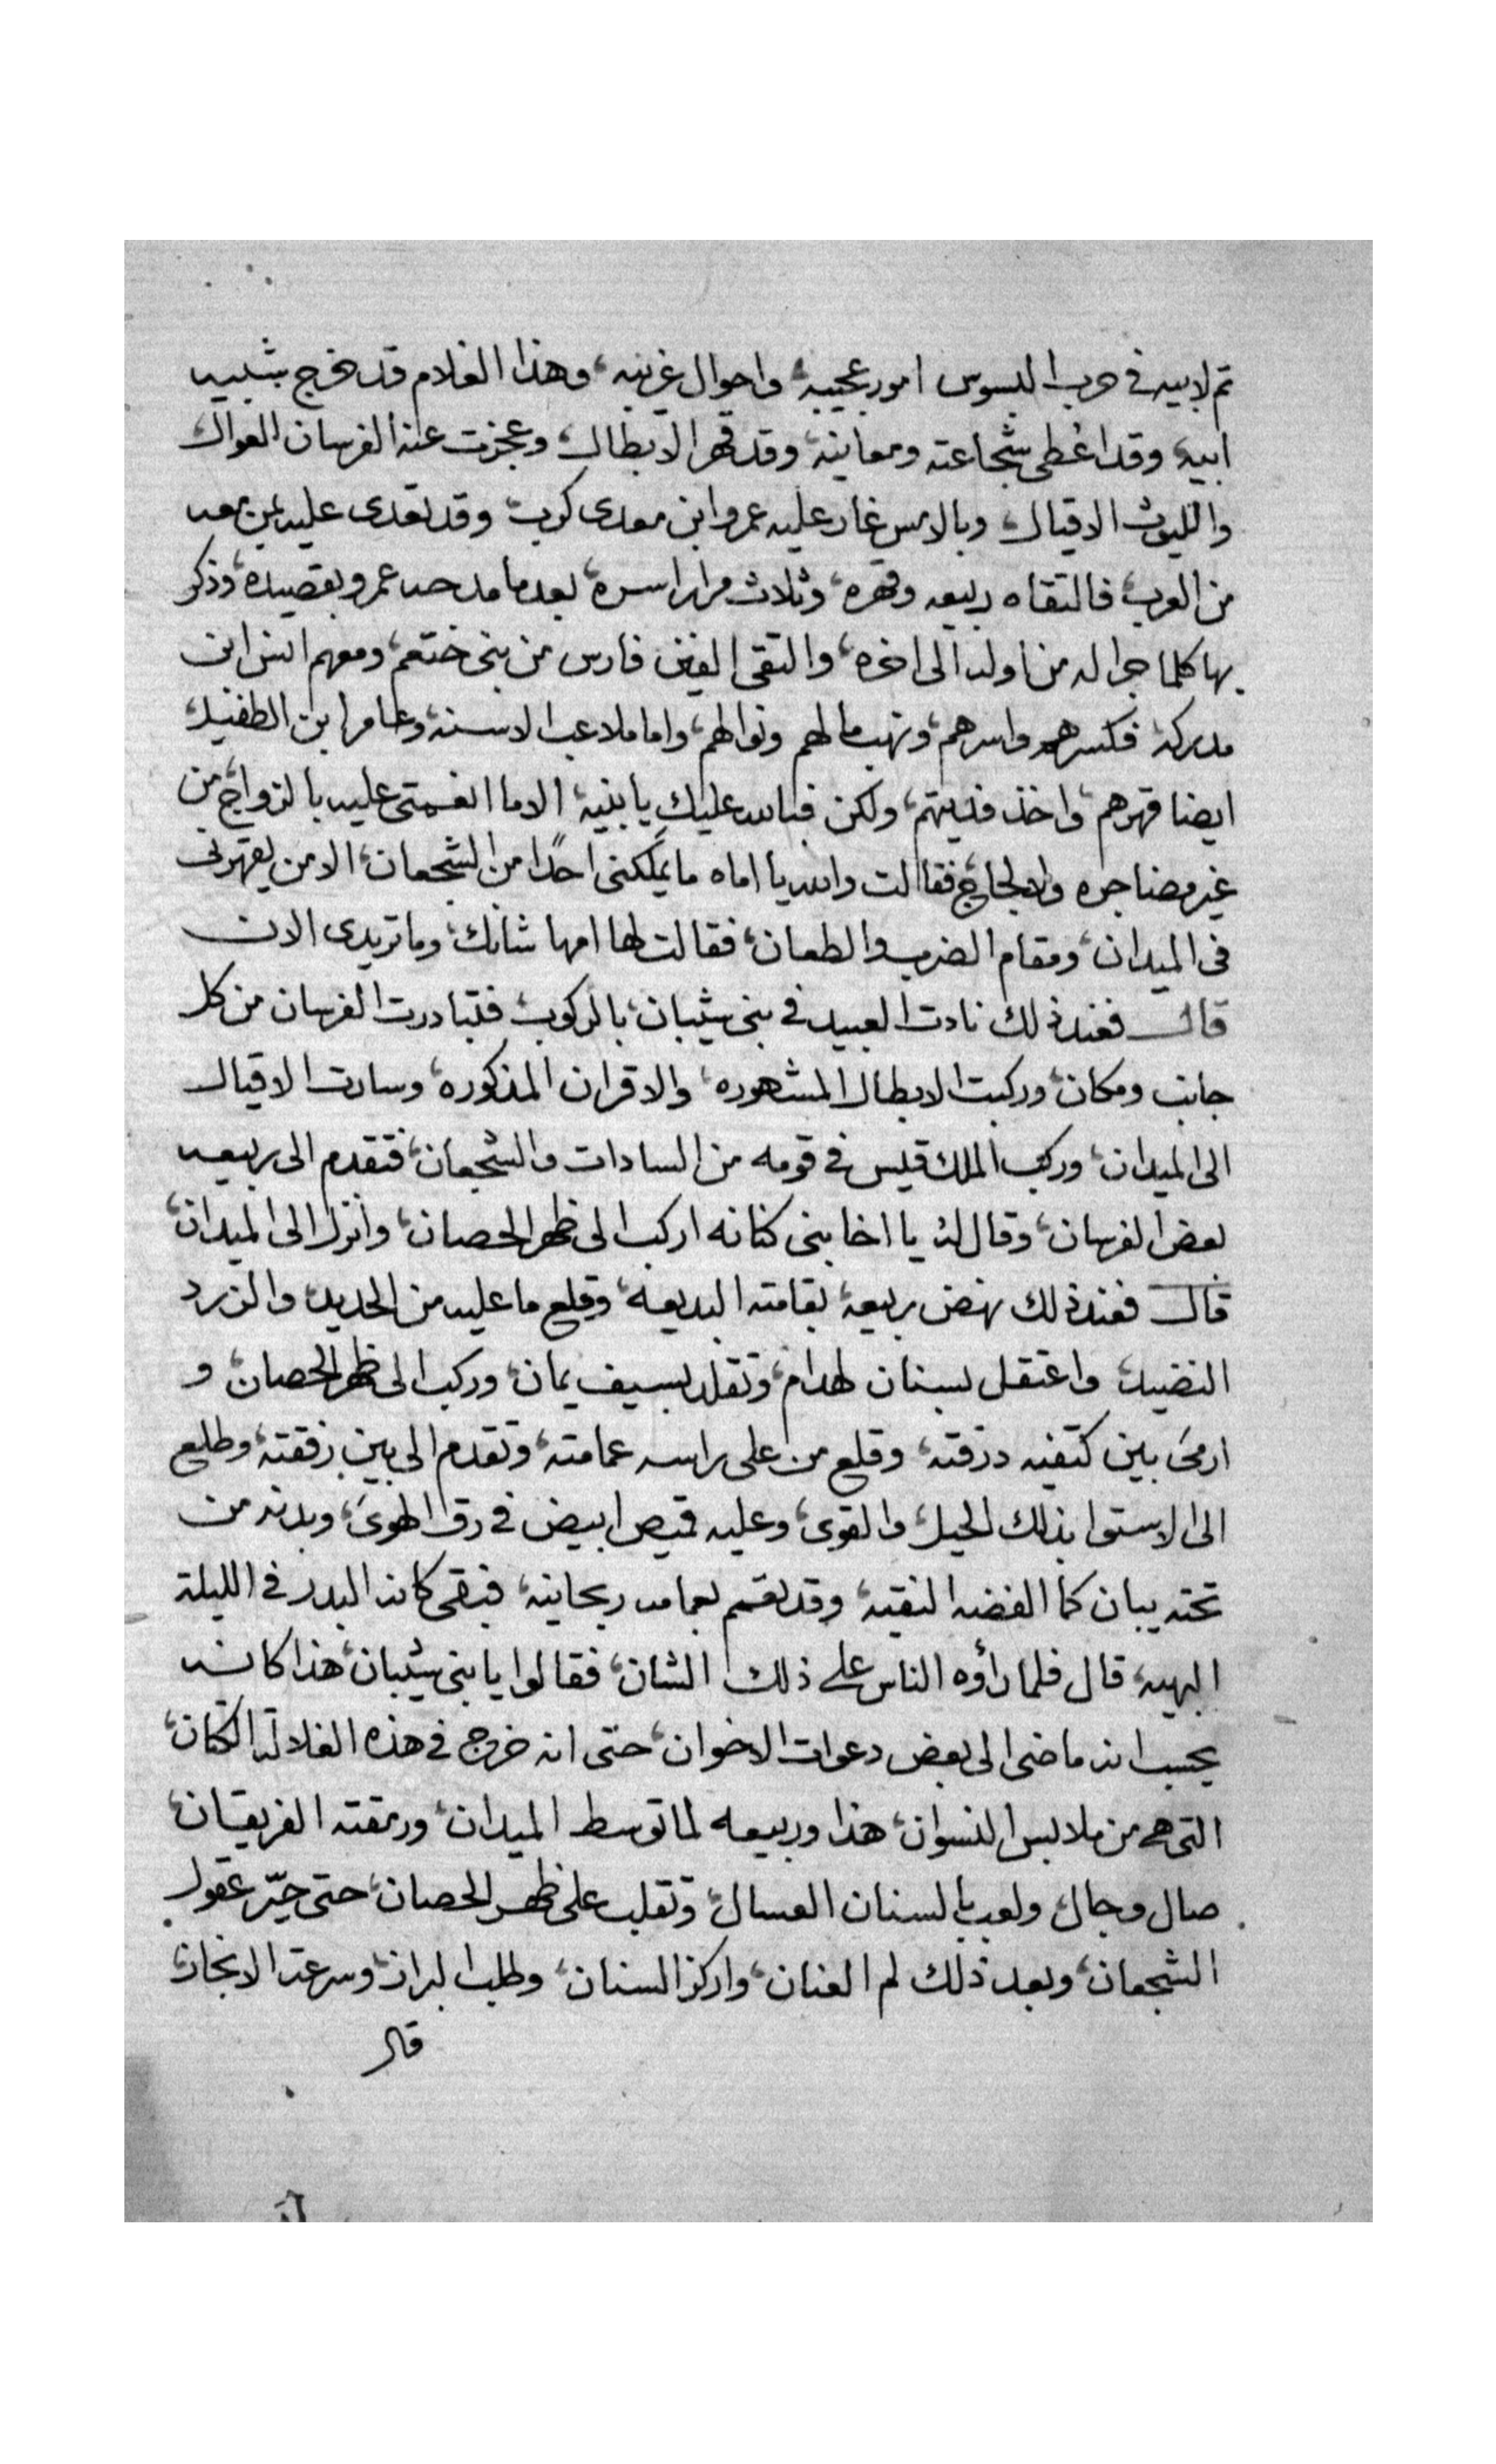 تم لابيه في حرب البسوس امور عجيبه، واحوال غريبه، وهذا الغلام قد خرج شبيه
ابيه، وقد اعُطى شجاعته ومعانيه، وقد قهر الابطال، وعجزت عنه الفرسان العوال
والليوث الاقيال، وبالامس غار عليه عمرو ابن معدى كرب، وقد تعدى عليه بمن معه
من العرب، فالتقاه ربيعه وقهره، وثلاث مرار اسره، بعد ما مدحه عمرو بقصيده، وذكر
بها كلما جرا له من اوله الى اخره، والتقى الفين فارس من بنى ختعم، ومعهم انس ابن
مدركه، فكسرهم واسرهم، ونهب مالهم ونوالهم، واما ملاعب الاسنه، وعامر ابن الطفيل،
ايضا قهرهم، واخذ فديتهم، ولكن فبالله عليك يا بنيه، الا ما انعمتى عليه بالزواج، من
غير مضاجره ولا لجاج، فقالت والله يا اماه ما يملكنى احدًا من الشجعان، الا من يقهرنى
فى الميدان، ومقام الضرب والطعان، فقالت لها امها شانك، وما تريدى الان
قال فعند ذلك نادت العبيد في بنى شيبان، بالركوب، فتبادرت الفرسان من كل
جانب ومكان، وركبت الابطال المشهوره، والاقران المذكوره، وسارت الاقيال
الى الميدان، وركب الملك قيس في قومه من السادات والشجعان، فتقدم الى ربيعه
بعض الفرسان، وقال له، يا اخا بنى كنانه اركب الى ظهر الحصان، وانزل الى الميدان،
قال فعند ذلك نهض ربيعه، بقامته البديعه، وقلع ما عليه من الحديد، والزرد
النضيد، واعتقل بسنان لهدام، وتقلد بسيف يمان، وركب الى ظهر الحصان، و
ارمىَ بين كتفيه درقته، وقلع من على راسه عمامته، وتقدم الى بين رفقته، وطلع
الى الاستوا بذلك الحيل، والقوى، وعليه قميص ابيض في رق الهوىَ، وبدنه من
تحته يبان كما الفضه النقيه، وقد تعمم بعمامه ريحانيه، فبقى كانه البدر في الليلة
البهيه، قال فلما راؤه الناس على ذلك الشان، فقالوا يا بنى شيبان، هذا كانه
يحسب انه ماضى الى بعض دعوات الاخوان، حتى انه خروج في هذه الغلالة الكتان،
التى هى من ملابس النسوان، هذا وربيعه لما توسط الميدان، ورمقته الفريقان،
صال وجال، ولعب بالسنان العسال، وتقلب على ظهر الحصان، حتى حيّر عقول
الشجعان، وبعد ذلك لم العنان، واركز السنان، وطلب البراز، وسرعة الانجاز،
قال